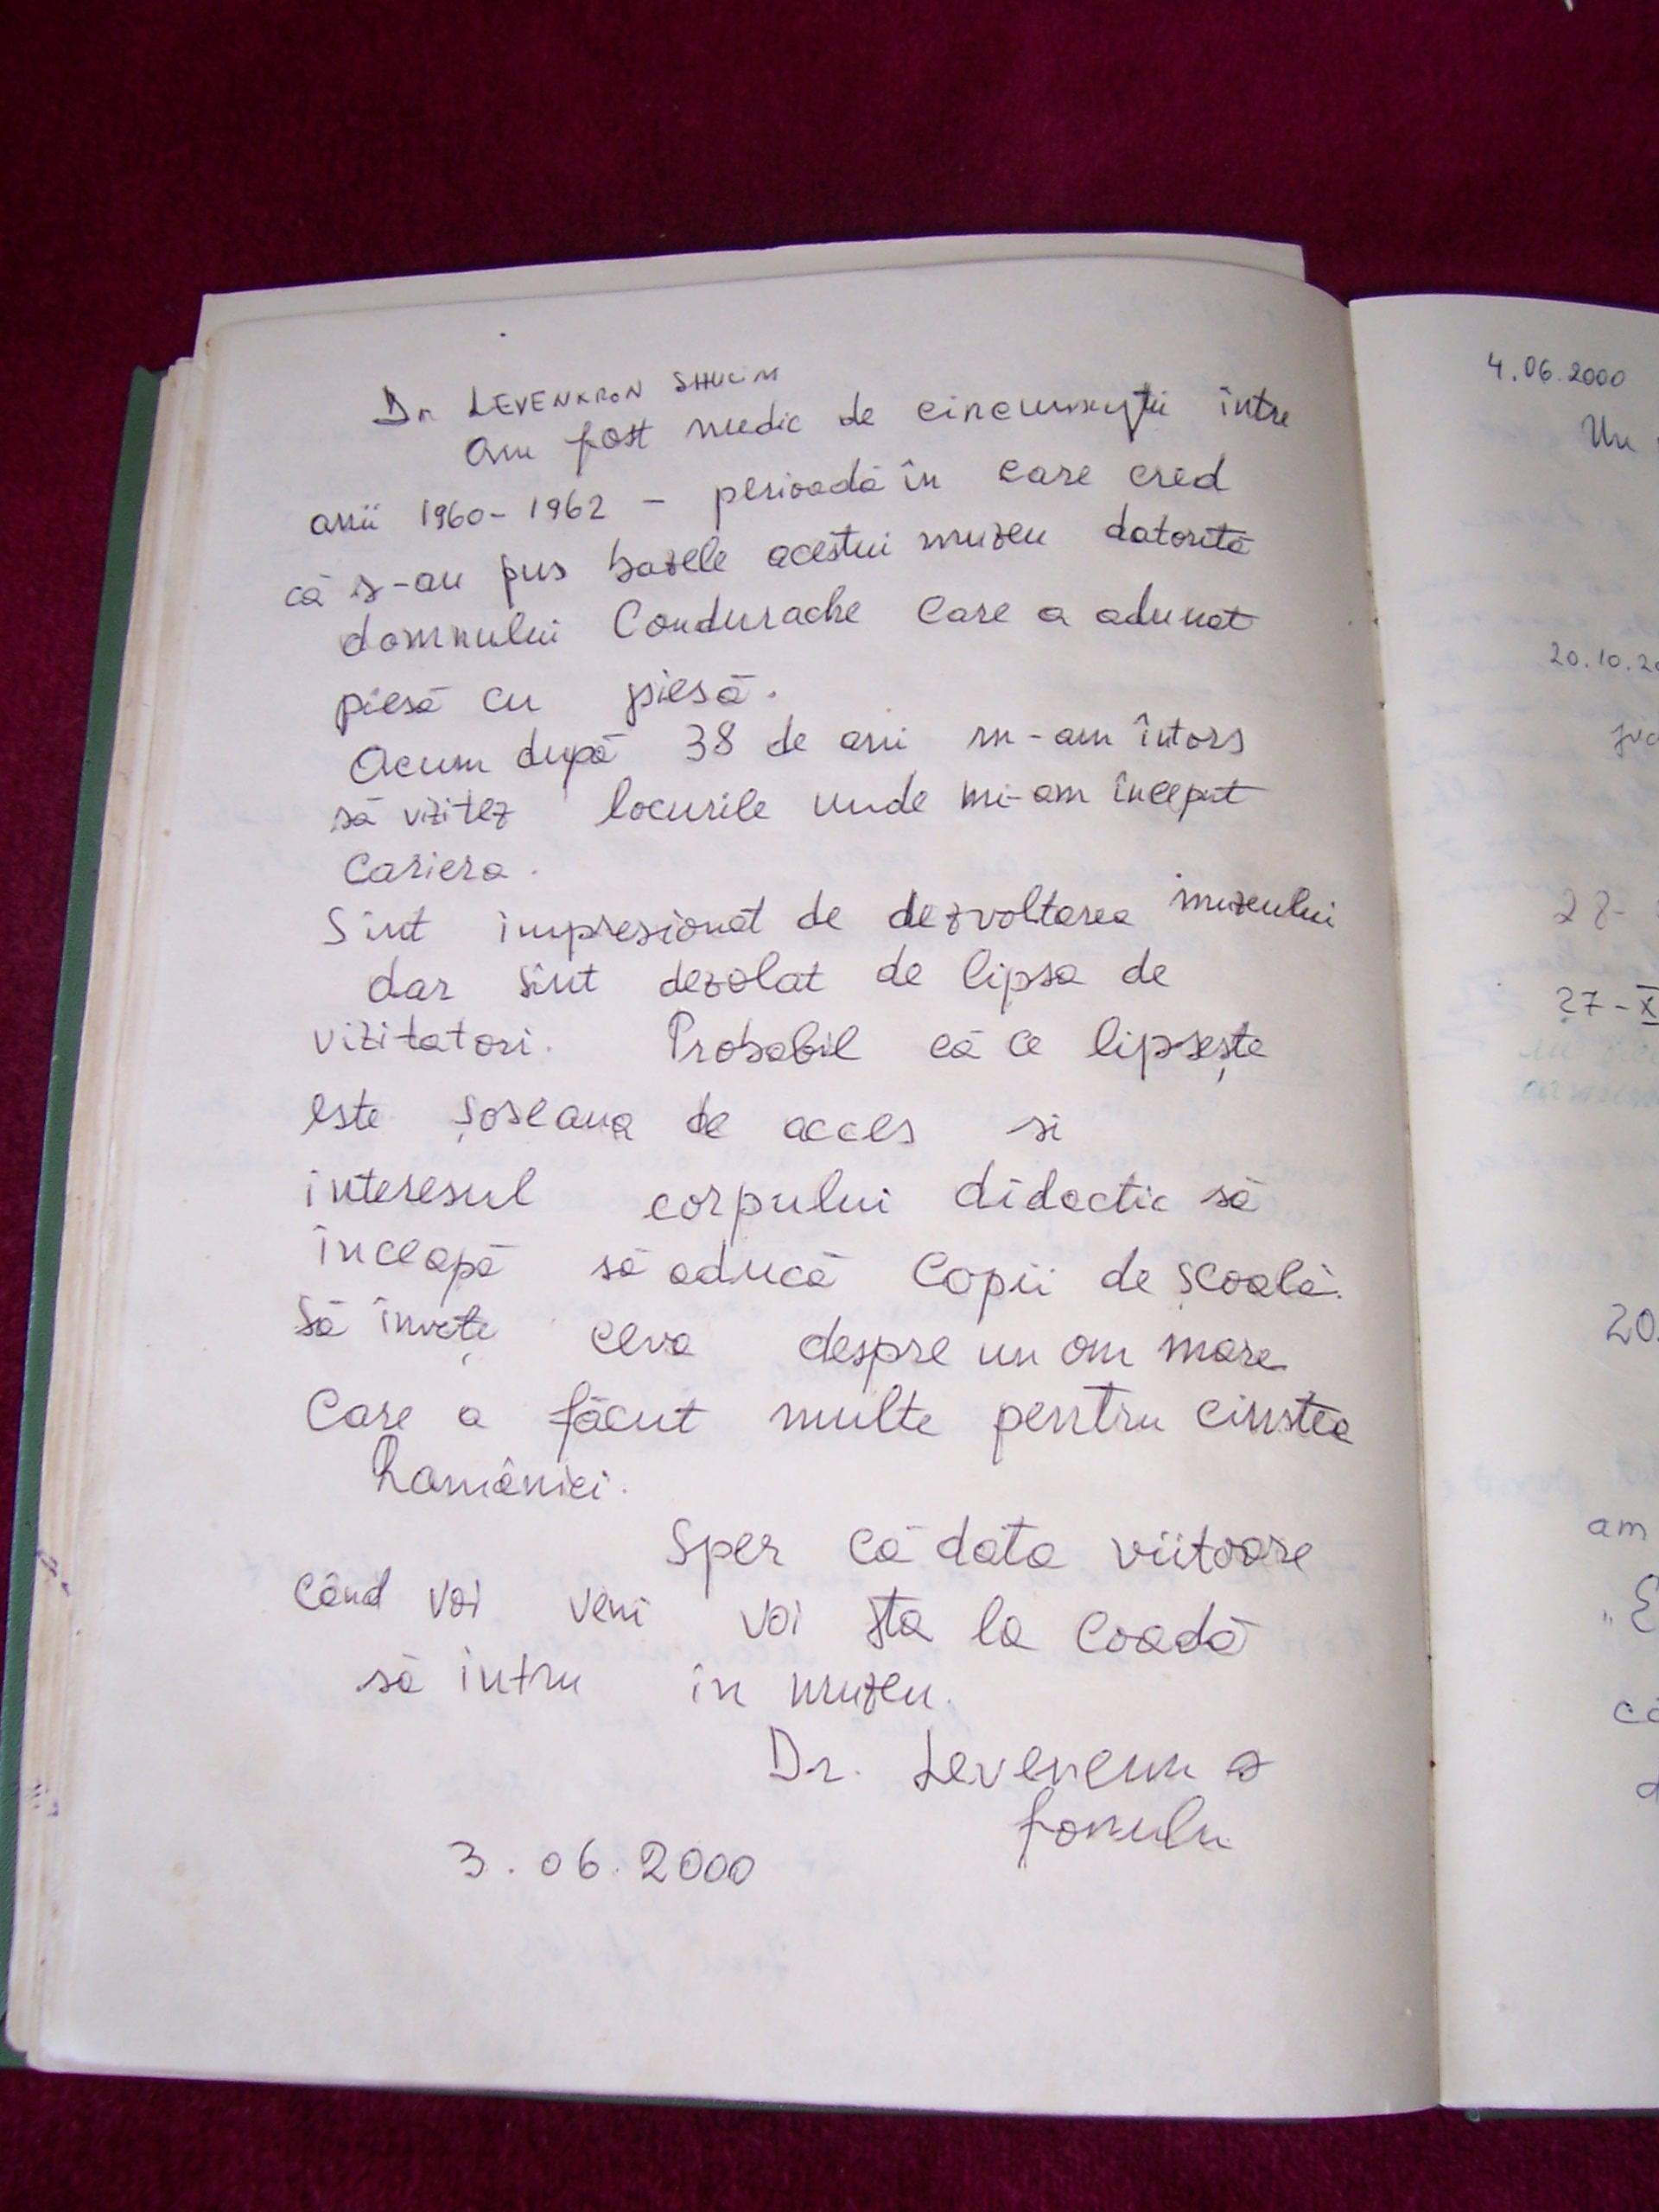 Dr LEVENKRON
Am fost medic de circumscripție între
anii 1960-1962 - perioadă în care cred
că s-au pus bazele acestui muzeu datorită
domnului Condurache care a adunat
piesă cu piesă.
Acum după 38 de ani m-am întors
să vizitez locurile unde mi-am început
cariera.
Sînt impresionat de dezvoltarea muzeului
dar sînt dezolat de lipsa de
vizitatori. Probabil că ce lipsește
este șoseaua de acces si
interesul corpului didactic să
înceapă să aducă copii de școală.
Să învețe ceva despre un om mare
care a făcut multe pentru cinstea
României.
Sper că data viitoare
când voi veni voi sta la coadă
să intru în muzeu.
Dr.
3.06.2000
4.06.2000
Un
27-X
am